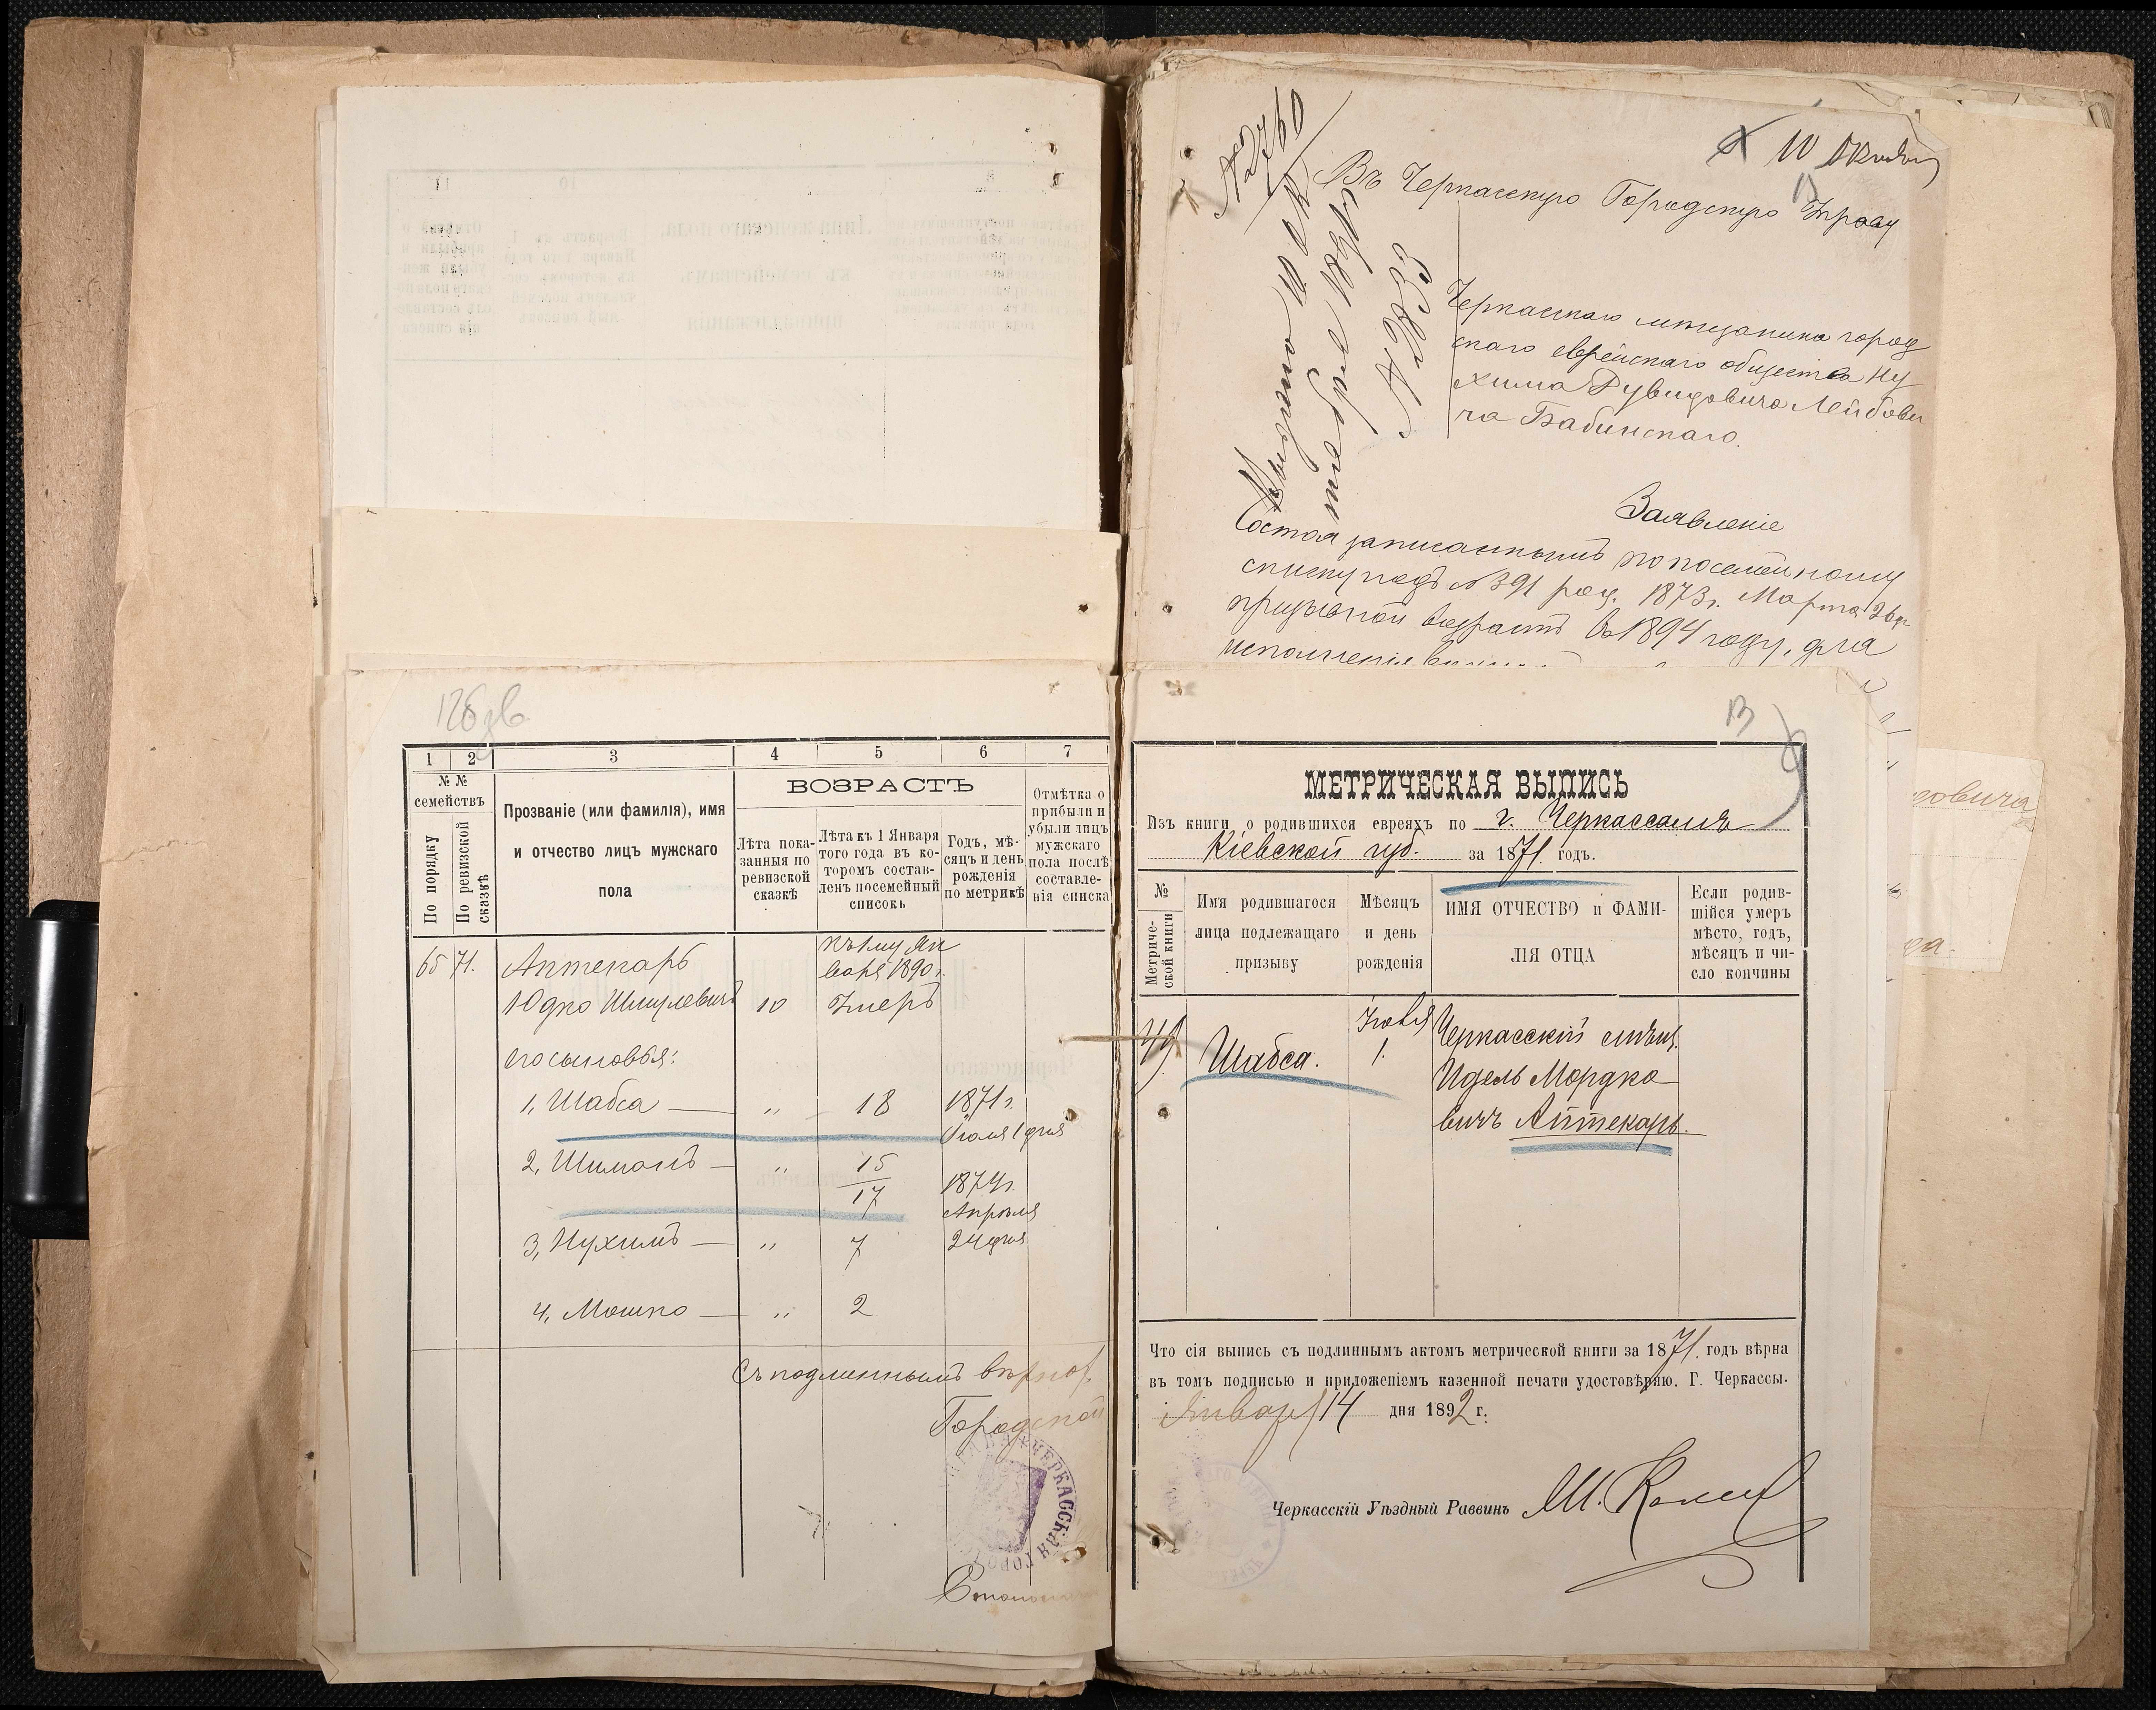 126 зв
1 2 3 4 5 6 7
№ № семействъ
По порядку
По ревизской сказкѣ
Прозваніе (или фамилія), имя
и отчество лицъ мужскаго
пола
ВОЗРАСТЪ
Лѣта пока-
занныя по
ревизской
сказкѣ
Лѣта къ 1 Января
того года въ ко-
торомъ состав-
ленъ посемейный
списокъ
Годъ, мѣ-
сяцъ и день
рожденія
по метрикѣ
Отмѣтка о
прибыли и
убыли лицъ
мужскаго
пола послѣ
составле-
нія списка
къ 1му Ян
варя 1890 г.
65 71. Аптекарь
Юдко Шмулевичъ 10 Умеръ
его сыновья:
1, Шабса — „ 18 1871 г.
Июля 1 дня
2, Шимонъ — „ 15
17 1874 г.
Апрѣля
24 дня
3, Нухимъ — „ 7
4, Мошко — „ 2
Съ подлиннымъ вѣрно
Городской
ЧЕРКАССКАЯ ГОРОД
№ 2760
10 Октября
13
Въ Черкасскую Городскую Управу
Выдано 10 Ок
тября 1893 г.
№ 2833
Черкаскаго мещанина город
скаго еврейскаго общества Ну
хима Рувидовича Лейбови
ча Бабинскаго.
Заявленіе
Состоя записаннымъ по посемейному
списку подъ № 391 род. 1873 г. Марта 26
призывной возрастъ въ 1894 году, для
исполненія
овича
13
МЕТРИЧЕСКАЯ ВЫПИСЬ
Изъ книги о родившихся евреяхъ по г. Черкассамъ
Кіевской губ. за 1871 годъ.
№
Метриче-
ской книги
Имя родившагося
лица подлежащаго
призыву
Мѣсяцъ
и день
рожденія
ИМЯ ОТЧЕСТВО и ФАМИ-
ЛІЯ ОТЦА
Если родив-
шійся умеръ
мѣсто, годъ,
мѣсяцъ и чи-
сло кончины
Шабса.
1.
Черкасскій мѣщ.
Идель Мордко
вичъ Аптекарь.
Что сія выпись съ подлиннымъ актомъ метрической книги за 1871 годъ вѣрна
въ томъ подписью и приложеніемъ казенной печати удостовѣряю. Г. Черкассы.
Января 14 дня 1892 г.
Черкасскій Уѣздный Раввинъ